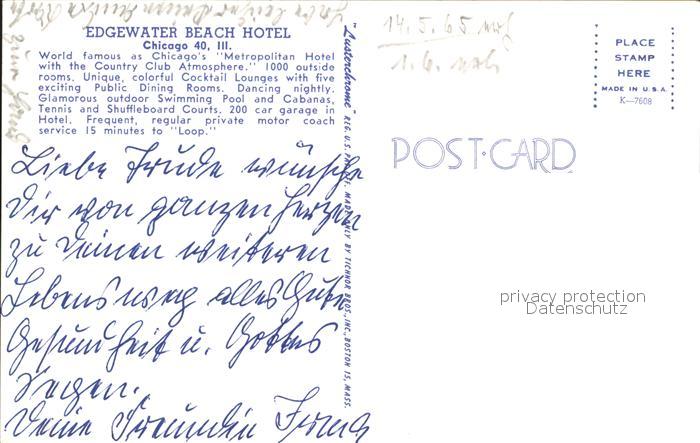 EDGEWATER BEACH HOTEL
Chicago 40, Ill.
World famous as Chicago's "Metropolitan Hotel
with the Country Club Atmosphere." 1000 outside
rooms. Unique, colorful Cocktail Lounges with five
exciting Public Dining Rooms. Dancing nightly.
Glamorous outdoor Swimming Pool and Cabanas,
Tennis and Shuffleboard Courts. 200 car garage in
Hotel. Frequent, regular private motor coach
service 15 minutes to "Loop."
Liebe Trude wünsche
Dir von ganzen Herzen
zu Deinen weiteren
Lebensweg alles Gute
Gesundheit u. Gottes
Segen.
Deine Freundin Irma
"Lusterchrome" REG. U.S. PAT. OFF. MADE ONLY BY TICHNOR BROS., INC., BOSTON 15, MASS.
14.5.65
1.6.
PLACE
STAMP
HERE
MADE IN U.S.A.
K-7608
POST-CARD
privacy protection
Datenschutz